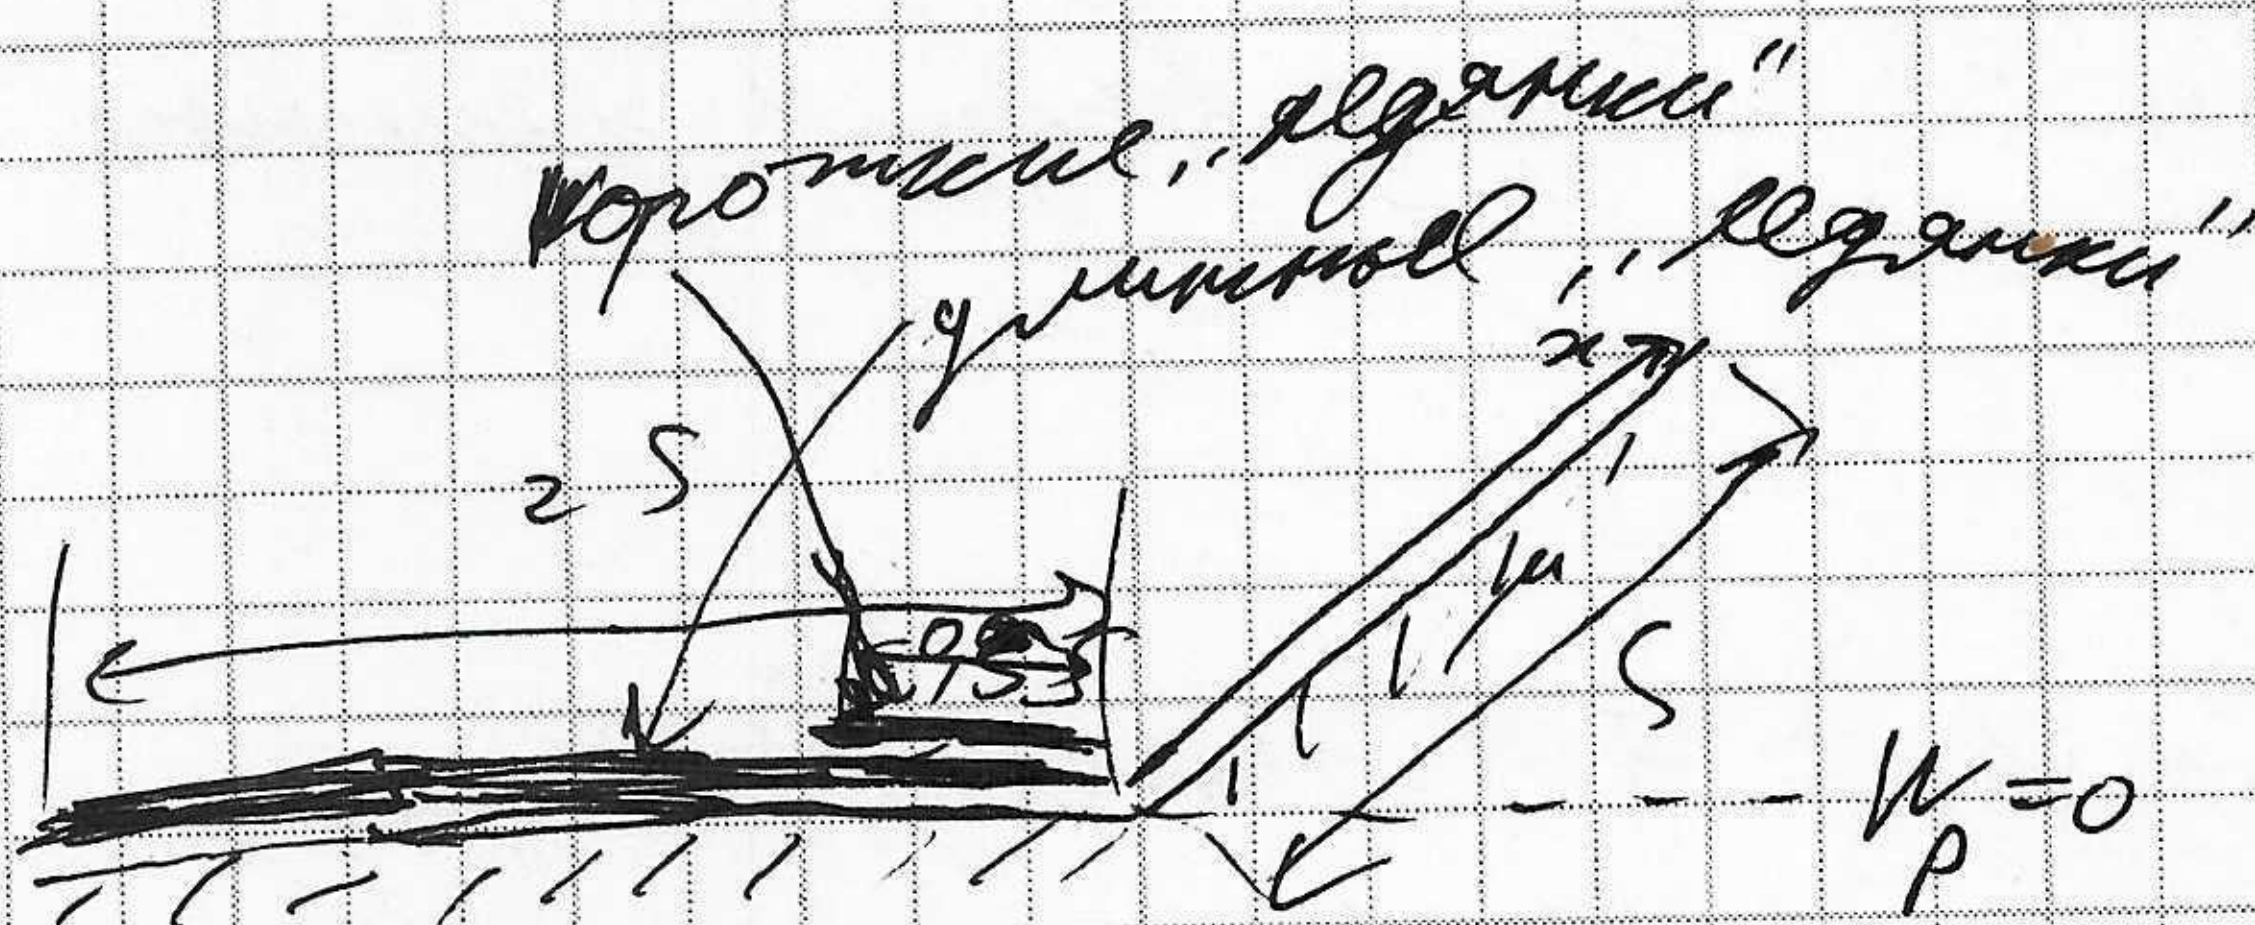 короткие „ледянки"
длинные „ледянки"
2 S
μ
S
W
p
=0